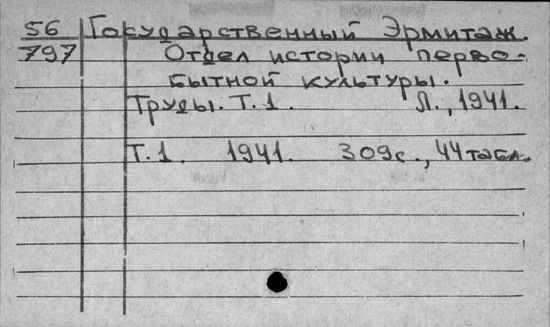 56 Государственный Эрмитаж.
797 Отдел истории перво-
бытной культуры.
Труды. Т. 1. Л., 1941.
Т. 1. 1941. 309 с., 44 табл.